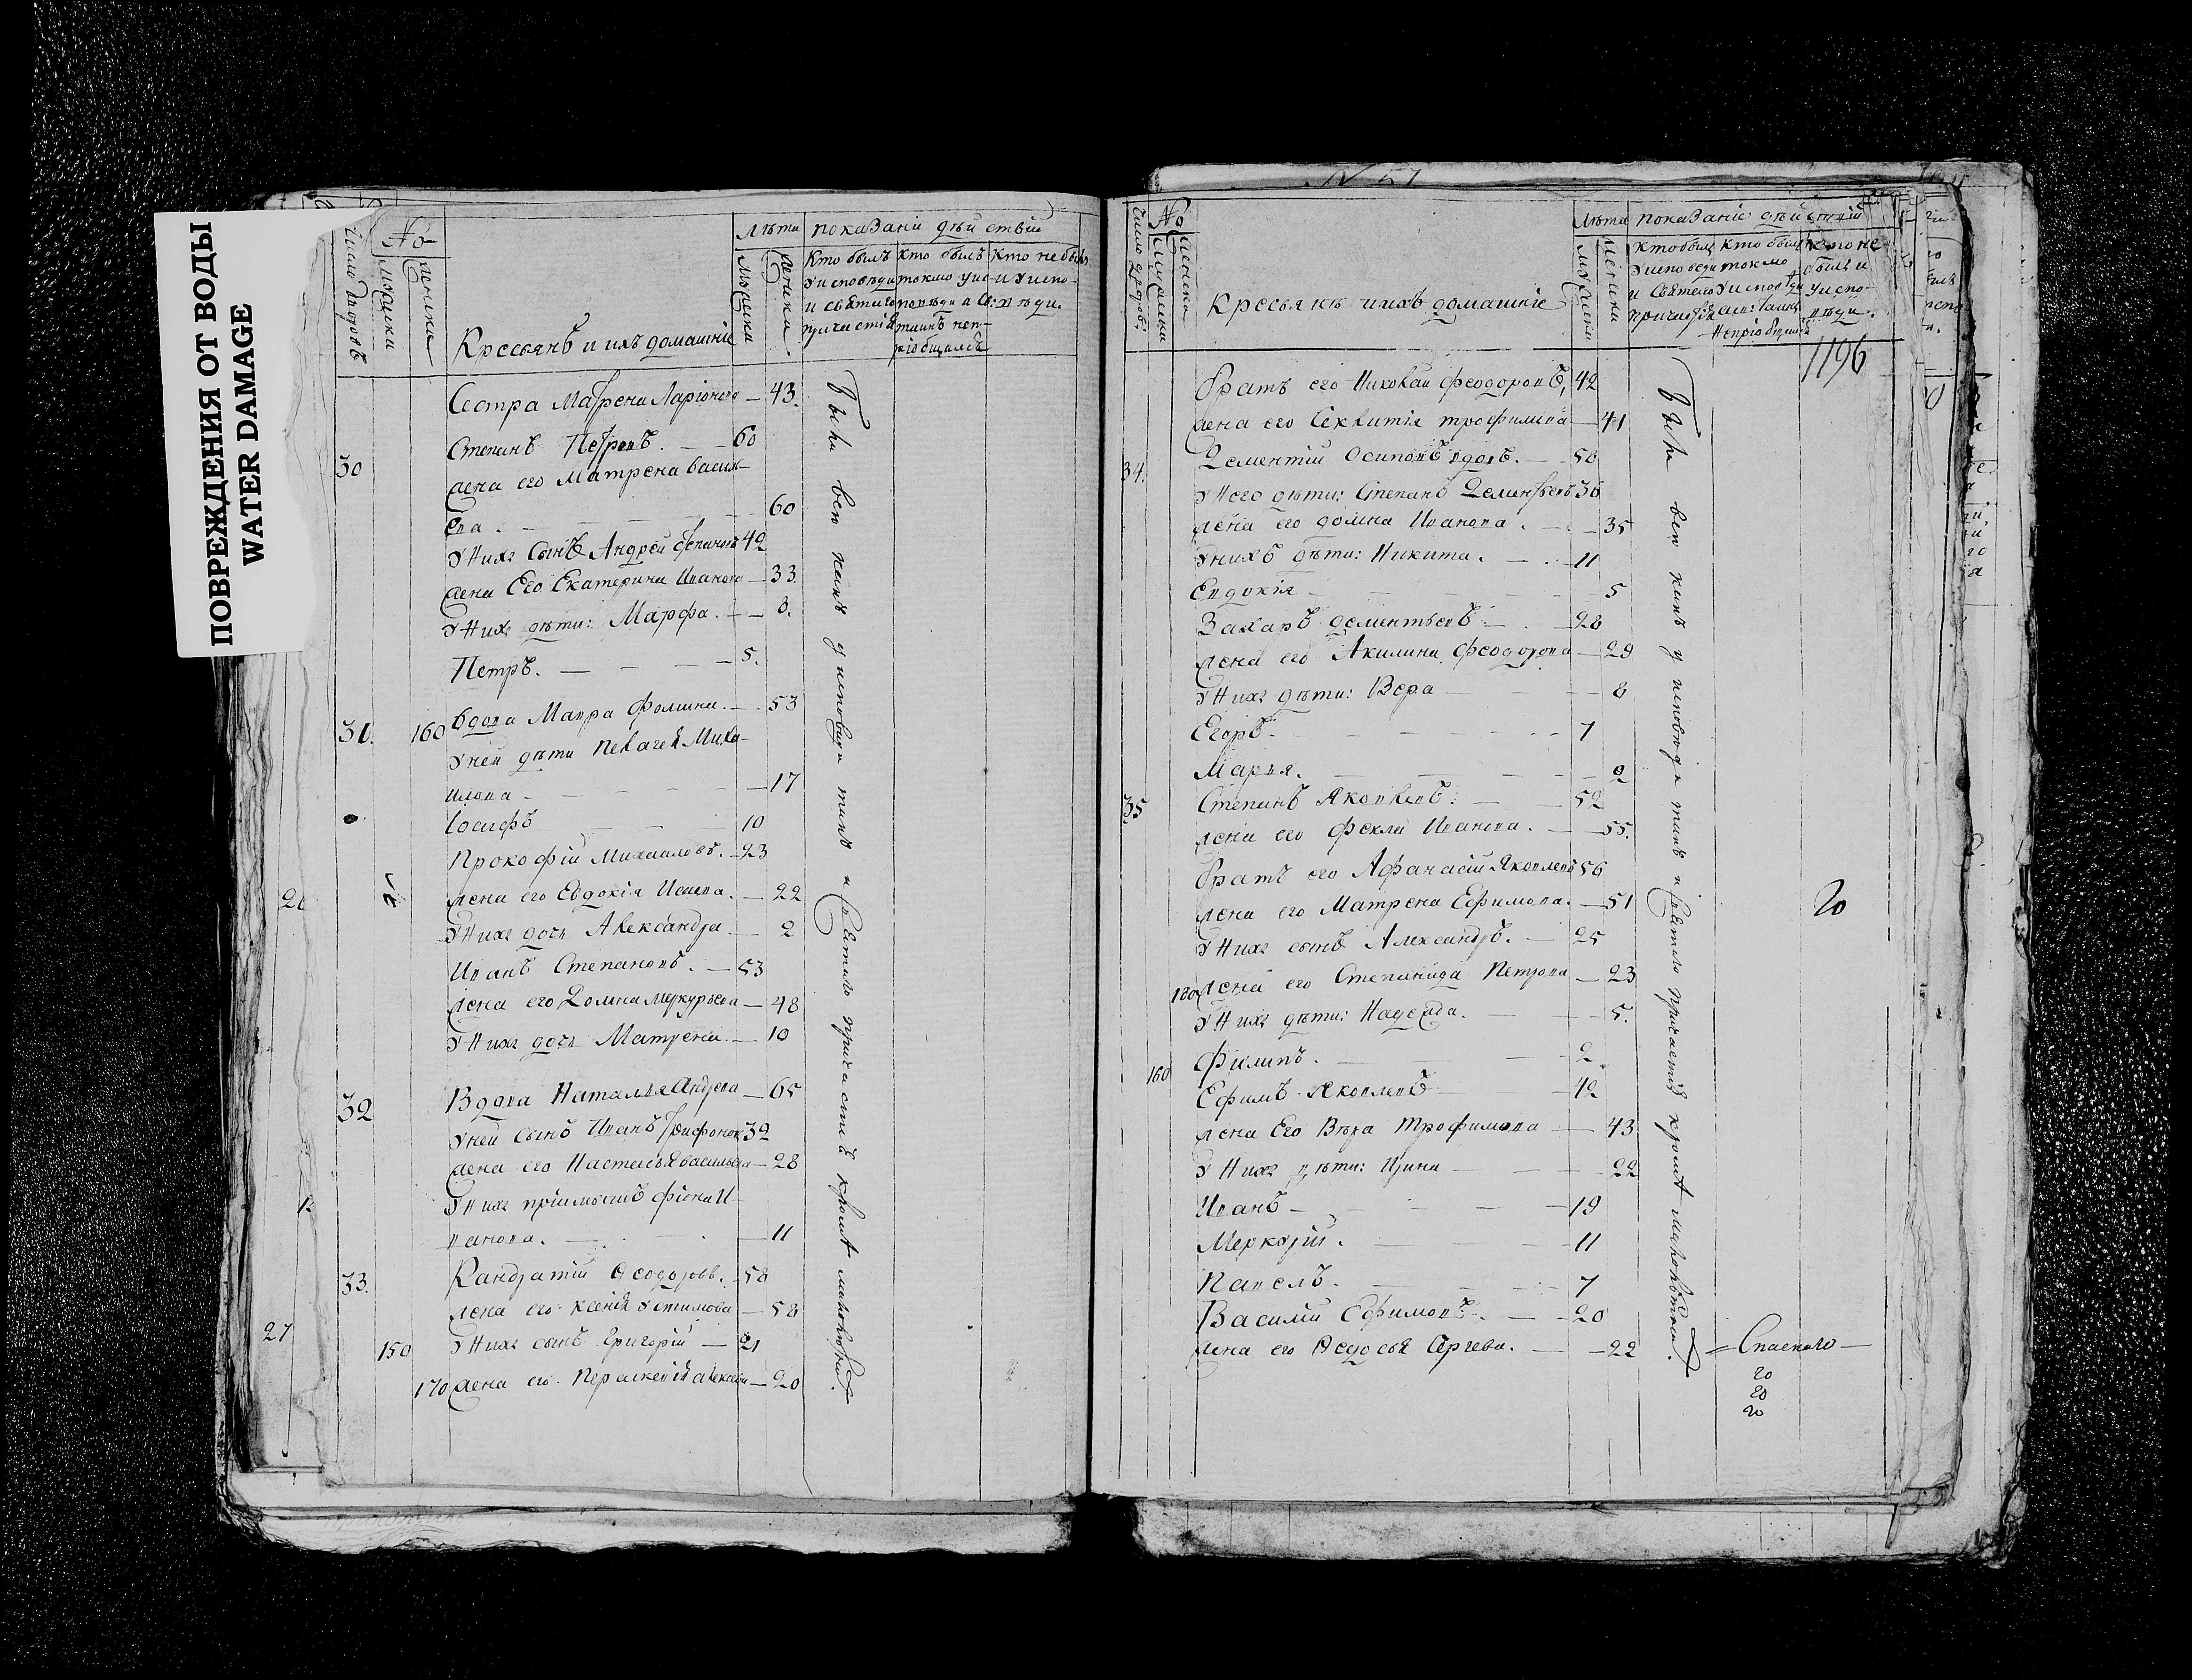 ПОВРЕЖДЕНИЯ ОТ ВОДЫ
WATER DAMAGE
Число дворовъ
№
мужска
женска
Кресьянъ и ихъ домашніе
лѣта
мужска
женска
показаніи дѣйствій
Кто былъ у исповѣди и святаго причастія
кто былъ токмо у исповѣди а св: таинъ непріобщался
кто не былъ и у исповѣди.
Сестра Матрена Ларіонова — 43.
30 Степанъ Петровъ. — 60
жена его Матрена Васил-
ева. — 60
У нихъ сынъ Андрей Степановъ 42
жена Его Екатерина Иванова — 33.
У нихъ дѣти: Марфа. — 8.
Петръ. — 5.
31. 160 вдова Мавра Фомина. — 53
У ней дѣти Пелагея Миха-
илова — 17
Іосифъ 10
Прокофій Михаиловъ. — 23
жена его Евдокія Исаева. — 22
У нихъ дочь Александра — 2
Иванъ Степановъ. — 53
жена его Домна Меркурьева — 48
У нихъ дочь Матрена. — 10
32 Вдова Наталья Андреева — 65
У ней сынъ Иванъ Трифоновъ 32
жена его Настасья Васильева — 28
У нихъ пріимышъ Фіона И-
ванова. — 11
33. Кандратій Феодоровъ. — 58
жена его Ксенія Устимова — 58
150 У нихъ сынъ Григорій — 21
170 жена его Перасковія Алексѣева — 20
Были все сіи у исповѣди и святаго причастія кромѣ малолѣтныхъ.
27
№ 51
Число дворовъ
№
мужска
женска
Кресьянъ и ихъ домашніе
лѣта
мужска
женска
показаніе дѣйствій
Кто былъ у исповеди и святаго причастія
кто былъ токмо у исповѣди а св: таинъ непріобщался
кто не былъ и у исповѣди.
1196
братъ его Николаи Феодоровъ, 42
жена его Секлитія Трофимова — 41
34. Дементій Осиповъ вдовъ. — 58
У него дѣти: Степанъ Дементьевъ 36
жена его Домна Иванова. — 35
У нихъ дѣти: Никита. — 11
Евдокія — 5
Захаръ Дементьевъ — 28
жена его Акилина Феодорова — 29
У нихъ дѣти: Вера — 8
Егоръ. — 7
Марья. — 2
35 Степанъ Яковлевъ: — 52
жена его Фекла Иванова. — 55.
братъ его Афанасій Яковлевъ 56
жена его Матрена Ефимова. — 51
У нихъ сынъ Александръ. — 25
180 жена его Степанида Петрова — 23
У нихъ дѣти: Надежда. — 5.
160 Филипъ. — 2
Ефимъ Яковлевъ — 42
жена Его Вѣра Трофимова — 43
У нихъ дѣти: Ирина — 22
Иванъ — 19
Меркурій. — 11
Павелъ. — 7
Василій Ефимовъ. — 20
жена его Феодосья Сргева. — 22
20
= Спаскаго —
20
20
20